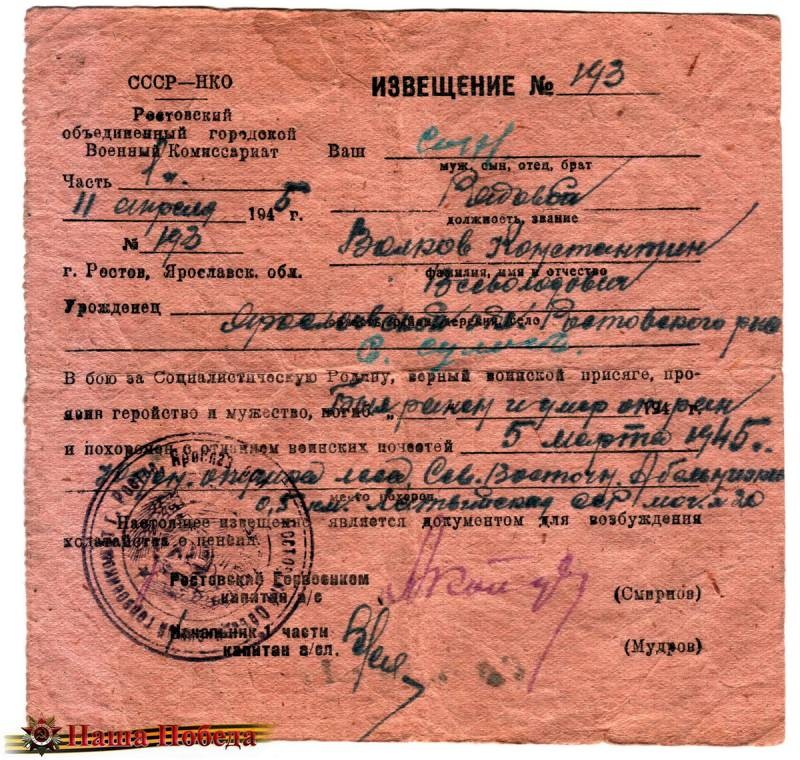 СССР—НКО
Ростовский
объединенный городской
Военный Комиссариат
Часть 1 ч.
11 апреля 1945 г.
№ 193
г. Ростов, Ярославск. обл.
ИЗВЕЩЕНИЕ № 193
Ваш сын
муж, сын, отец, брат
Рядовой
должность, звание
Волков Константин
фамилия, имя и отчество
Всеволодович
Уроженец Ярославской обл Ростовского р-на
с. Сулость
В бою за Социалистическую Родину, верный воинской присяге, про-
явив геройство и мужество, погиб „ Был ранен и умер от ран 194 г.
и похоронен с отданием воинских почестей 5 марта 1945г.
опушка леса, Сев. Восточн.
место похорон
0,5 км. Латвийская ССР мог. № 20
Настоящее извещение является документом для возбуждения
ходатайства о пенсии.
Ростовский Горвоенком
капитан а/с
(Смирнов)
Начальник 1 части
капитан а/сл.
(Мудров)
Наша Победа